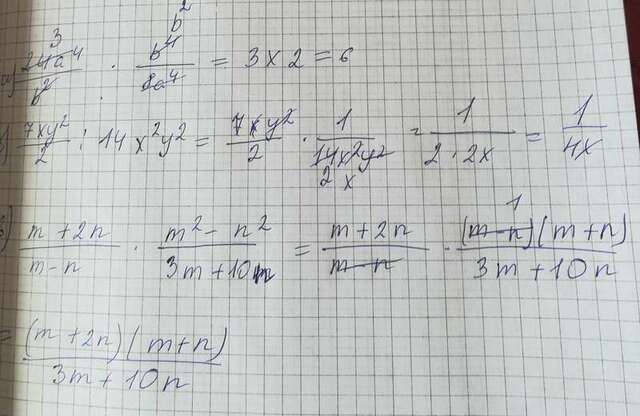 а) 24a⁴/b² · b⁴/8a⁴ = 3 x 2 = 6
3 b²
б) 7xy²/2 : 14x²y² = 7xy²/2 · 1/14x²y² = 1/2 · 2x = 1/4x
2 x
в) m + 2n/m - n · m² - n²/3m + 10n = m + 2n/m - n · (m - n)(m + n)/3m + 10n
1
= (m + 2n)(m + n)/3m + 10n